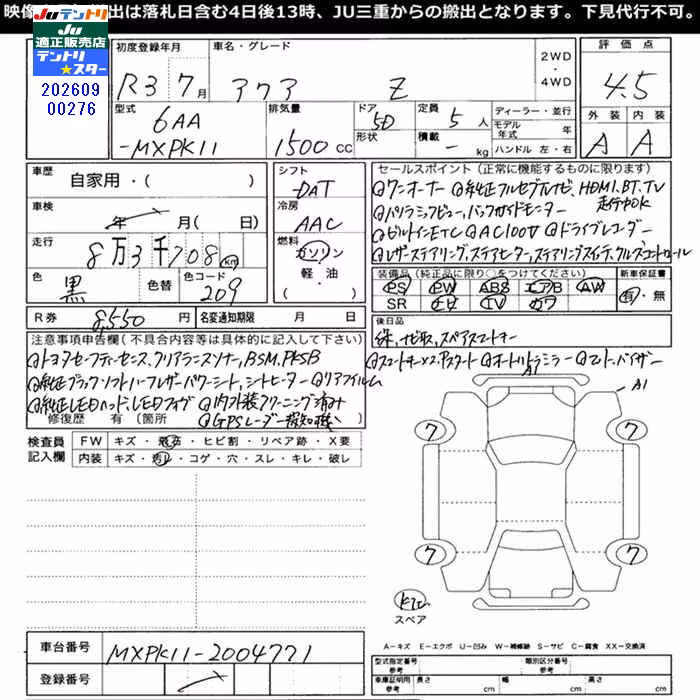 映像 出は落札日含む4日後13時、JU三重からの搬出となります。下見代行不可。
Juテントリ
JU
適正販売店
テントリ★スター
202609
00276
初度登録年月
R3 7月
車名・グレード
アクア Z
2WD
・
4WD
評価点
4.5
外装 内装
A A
型式
6AA
-MXPK11
排気量
1500 cc
ドア
5D
形状
定員
5人
積載
- kg
ディーラー・並行
モデル年式 年
ハンドル 左・右
車歴
自家用・( )
車検
年 月(日)
走行
8万3千708 km
色
黒
色替
色コード
209
シフト
DAT
冷房
AAC
燃料
ガソリン
軽・油
( )
R券 8,550円
名変通知期限 月 日
セールスポイント(正常に機能するものに限ります)
◎ワンオーナー ◎純正フルセグナビ、HDMI、BT、TV
走行中OK
◎パノラミックビュー、バックガイドモニター
◎ビルトインETC ◎AC100V ◎ドライブレコーダー
◎レザーステアリング、ステアヒーター、ステアリングスイッチ、クルーズコントロール
装備品(純正品に限り○をつけてください)
PS PW ABS エアB AW
SR ナビ TV カワ
新車保証書
有・無
後日品
保、ナビ取、スペアスマートキー
注意事項申告欄(不具合内容等は具体的に記入して下さい)
◎トヨタセーフティーセンス、クリアランスソナー、BSM、PKSB
◎純正ブラックソフトハーフレザーパワーシート、シートヒーター ◎リアフィルム
◎純正LEDヘッド、LEDフォグ ◎内外装クリーニング済み
◎GPSレーダー探知機
修復歴 有(箇所
◎スマートキー×2、Pスタート ◎オートリトラミラー ◎マット、バイザー
検査員
記入欄
FW キズ・飛石・ヒビ割・リペア跡・X要
内装 キズ・汚れ・コゲ・穴・スレ・キレ・破レ
A1
A1
7 7
7 7
スペア
車台番号 MXPK11-2004771
登録番号
A-キズ E-エクボ U-凹み W-補修跡 S-サビ C-腐食 XX-交換済
型式指定番号 参考
類別区分番号 参考
車庫証明用 参考
長さ cm 幅 cm 高さ cm